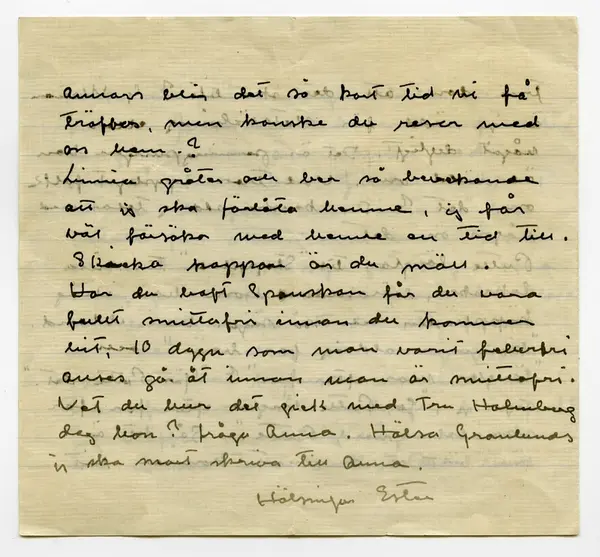 annars blir det så kort tid vi få
träffas, men kanske du reser med
oss hem.?
Linnea gråter och ber så bevekande
att jg ska förlåta henne, jg får
väl försöka med henne en tid till.
Skicka kappan är du snäll.
Har du haft Spanskan får du vara
fullt smittofri innan du kommer
hit, 10 dygn som man varit feberfri
anses gå åt innan man är smittofri.
Vet du hur det gick med Fru Holmberg
dog hon? fråga Anna. Hälsa Granlunds
jg ska snart skriva till Anna.
Hälsningar Ester